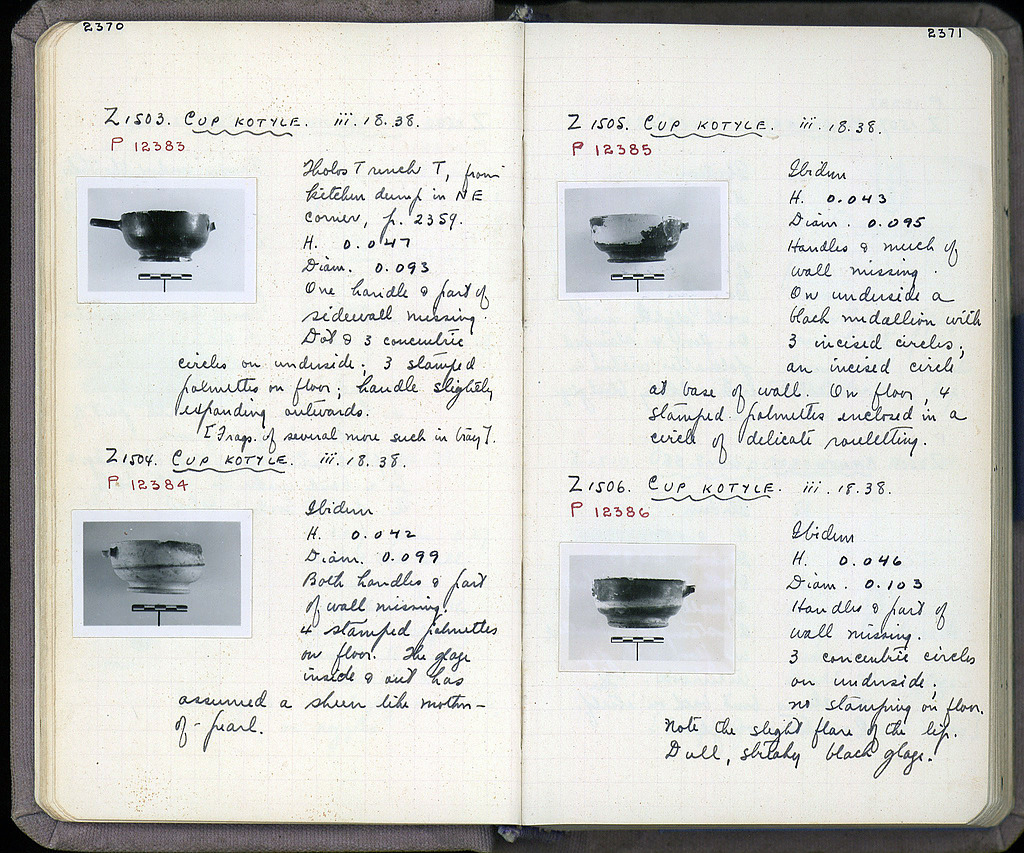 2370
Z 1503. CUP KOTYLE. iii.18.38.
P 12383
Tholos Trench T, from
kitchen dump in NE
corner, p. 2359.
H. 0.047
Diam. 0.093
One handle & part of
sidewall missing.
Dot & 3 concentric
circles on underside; 3 stamped
palmettes on floor; handle slightly
expanding outwards.
[Frags. of several more such in tray].
Z 1504. CUP KOTYLE. iii.18.38.
P 12384
Ibidem
H. 0.042
Diam. 0.099
Both handles & part
of wall missing.
4 stamped palmettes
on floor. The glaze
inside & out has
assumed a sheen like mother-
of-pearl.
2371
Z 1505. CUP KOTYLE. iii.18.38.
P 12385
Ibidem
H. 0.043
Diam. 0.095
Handles & much of
wall missing.
On underside a
black medallion with
3 incised circles;
an incised circle
at base of wall. On floor, 4
stamped palmettes enclosed in a
circle of delicate rouletting.
Z 1506. CUP KOTYLE. iii.18.38.
P 12386
Ibidem
H. 0.046
Diam. 0.103
Handles & part of
wall missing.
3 concentric circles
on underside;
no stamping on floor.
Note the slight flare of the lip.
Dull, streaky black glaze.